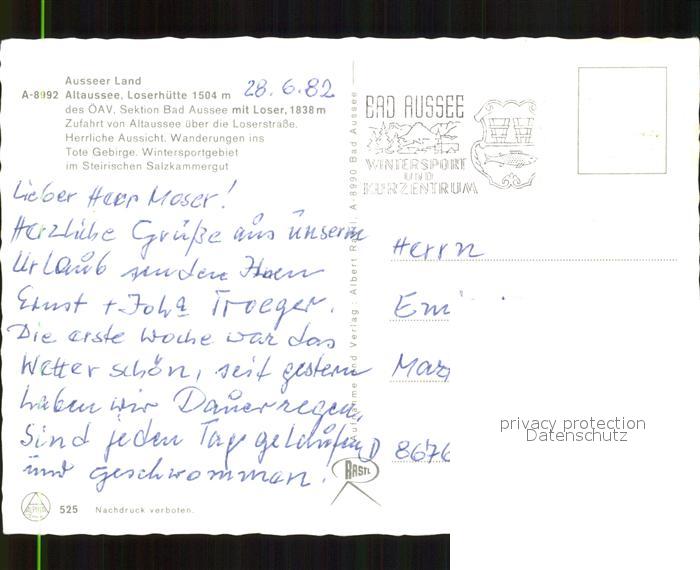 Ausseer Land
A-8992 Altaussee, Loserhütte 1504 m
des ÖAV, Sektion Bad Aussee mit Loser, 1838 m
Zufahrt von Altaussee über die Loserstraße.
Herrliche Aussicht. Wanderungen ins
Tote Gebirge. Wintersportgebiet
im Steirischen Salzkammergut
28.6.82
Lieber Herr Moser!
Herzliche Grüße aus unserm
Urlaub senden Ihnen
Ernst + Troeger.
Die erste Woche war das
Wetter schön, seit gestern
haben wir Dauerregen.
Sind jeden Tag gelaufen
und geschwommen.
525 Nachdruck verboten.
Aufnahme und Verlag: Albert Rastl, A-8990 Bad Aussee
RASTL
BAD AUSSEE
WINTERSPORT
UND
KURZENTRUM
Herrn
Emi
D 8676
privacy protection
Datenschutz